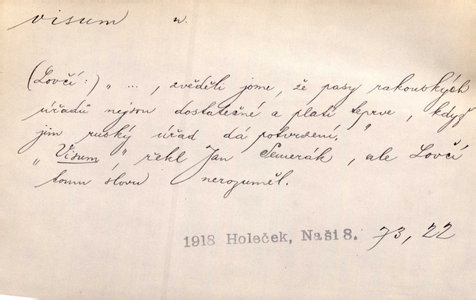 visum n.
(Lovčí:) „ ..., zvěděli jsme, že pasy rakouských
úřadů nejsou dostatečné a platí teprve, když
jim ruský úřad dá potvrzení, "
„ Visum, " řekl Jan Semerák, ale Lovčí
tomu slovu nerozuměl.
1918 Holeček, Naši 8. 73, 22